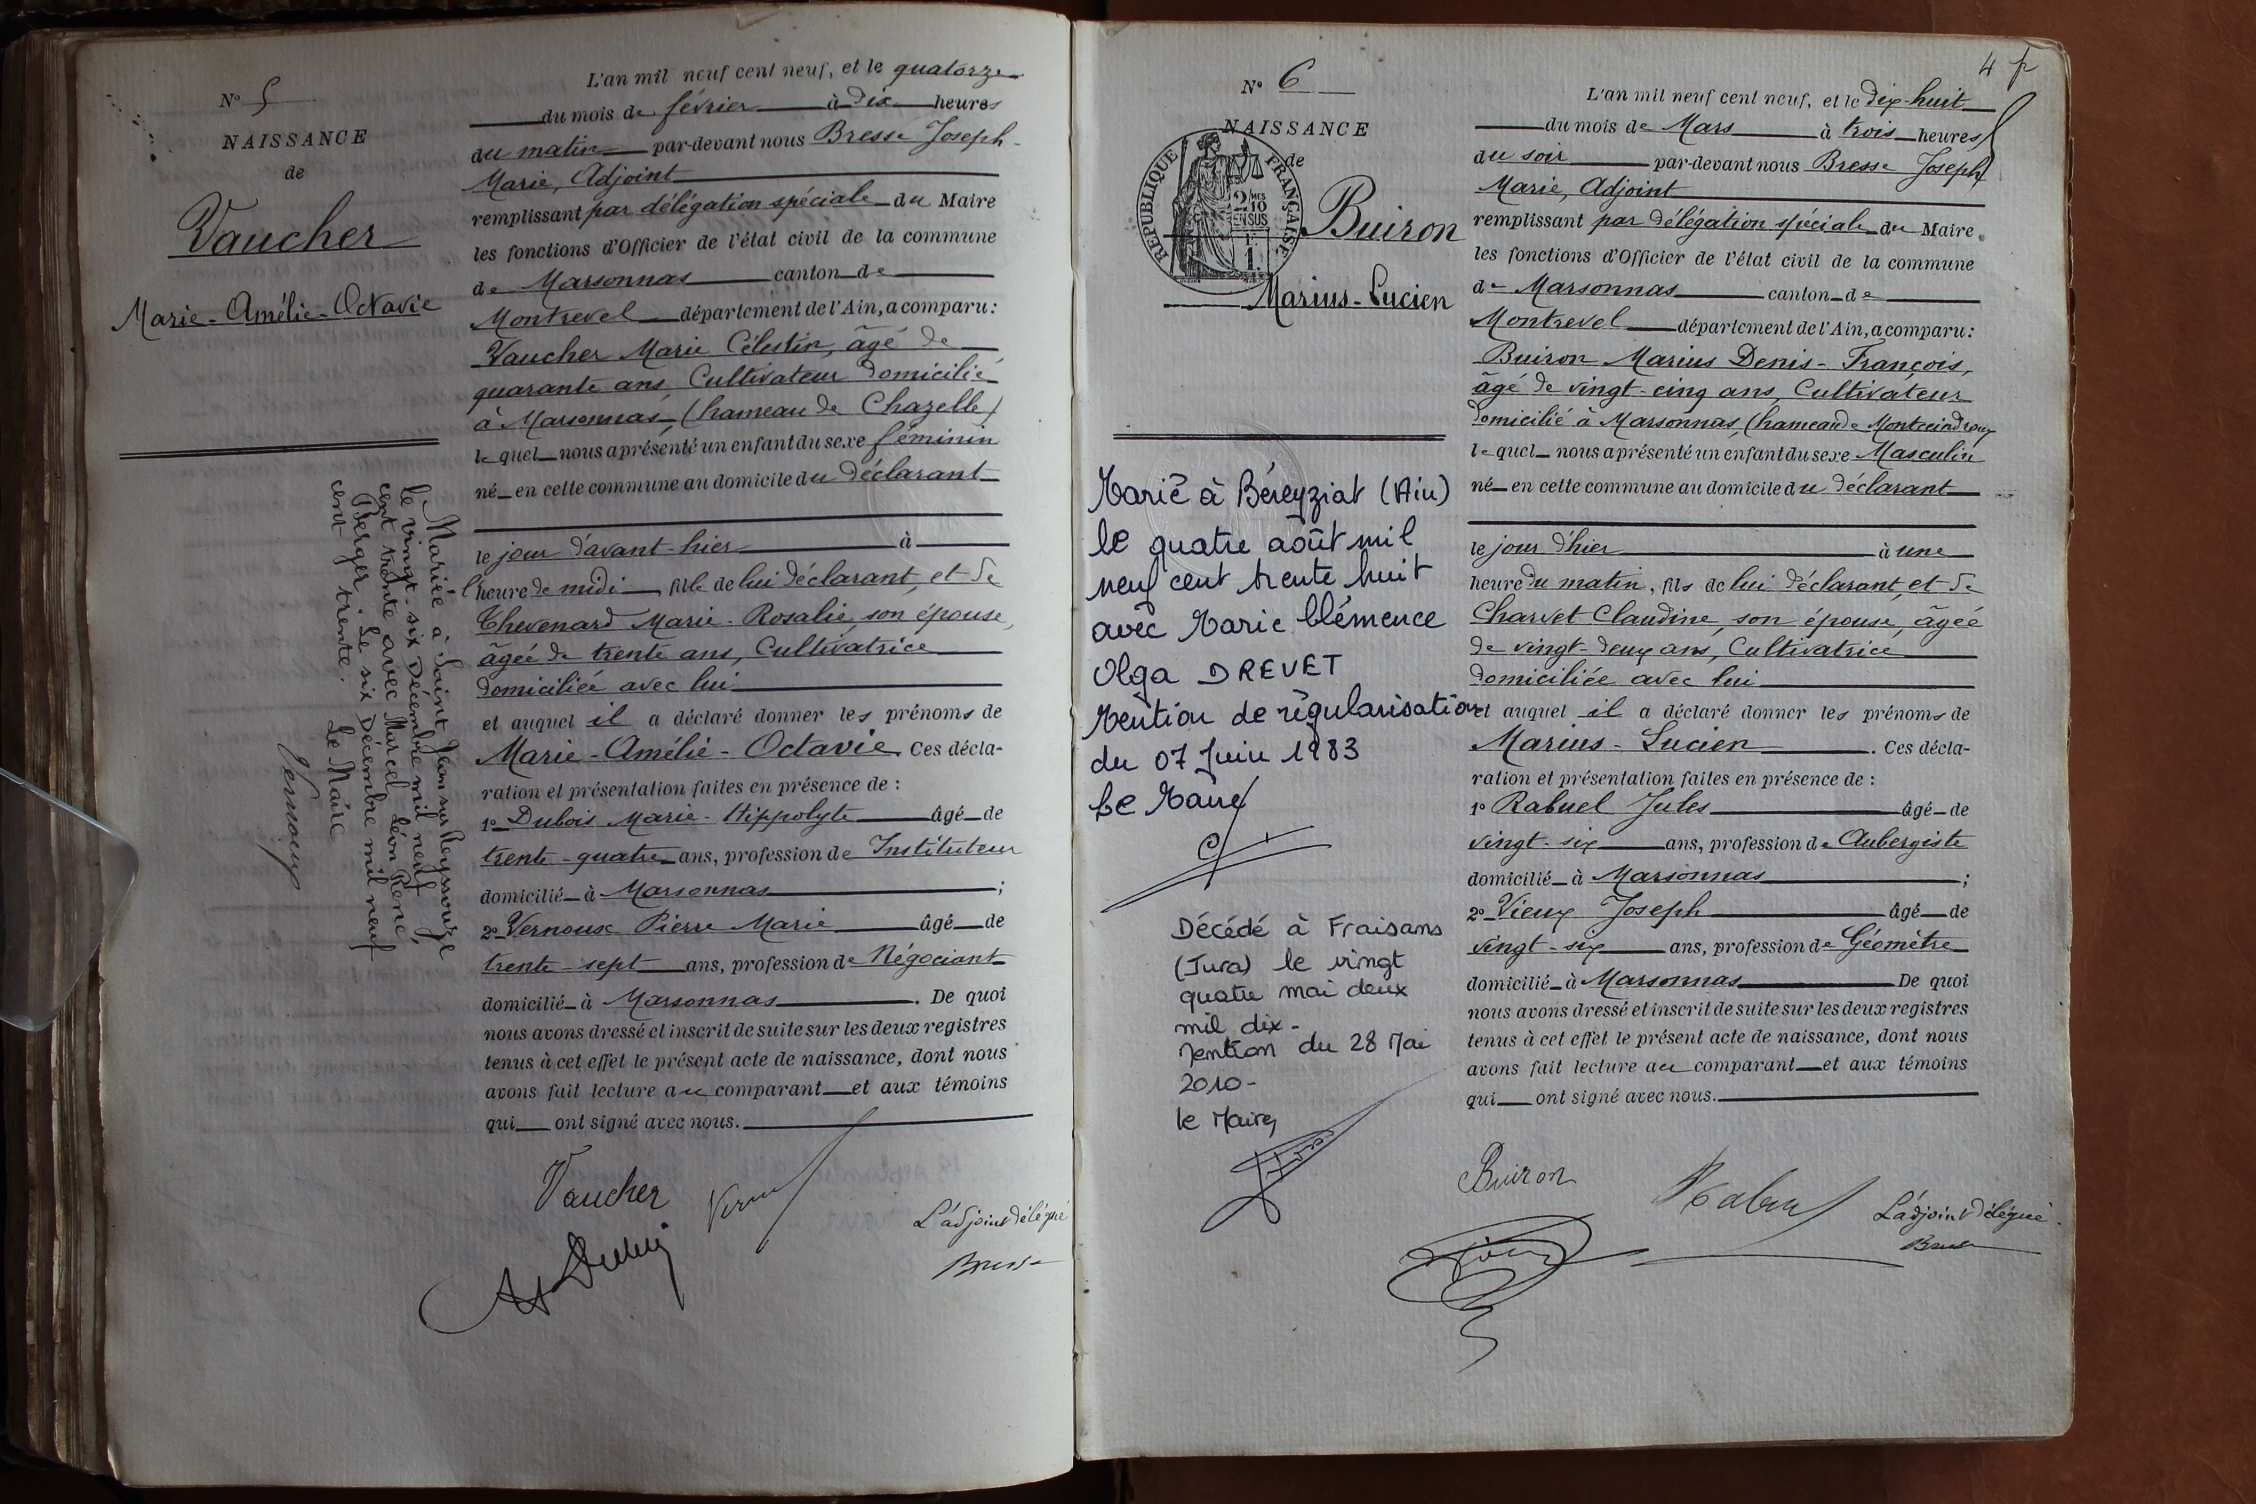 N° 5
NAISSANCE
de
Vaucher
Marie-Amélie-Octavie
Mariée à Saint Jean sur Reyssouze
le vingt-six Décembre mil neuf
cent trente avec Marcel Léon René,
Berger. Le six Décembre mil neuf
cent trente.
Le Maire
Vernoux
L'an mil neuf cent neuf, et le quatorze
du mois de février à dix heures
du matin par-devant nous Bresse Joseph-
Marie, Adjoint
remplissant par délégation spéciale du Maire
les fonctions d'Officier de l'état civil de la commune
de Marsonnas canton de
Montrevel département de l'Ain, a comparu:
Vaucher Marie Célestin, âgé de
quarante ans, Cultivateur domicilié
à Marsonnas, (hameau de Chazelle)
lequel nous a présenté un enfant du sexe féminin
né en cette commune au domicile du déclarant
le jour d'avant-hier à
l'heure de midi, fille de lui déclarant, et de
Thevenard Marie-Rosalie, son épouse,
âgée de trente ans, Cultivatrice
domiciliée avec lui
et auquel il a déclaré donner les prénoms de
Marie-Amélie-Octavie. Ces décla-
ration et présentation faites en présence de :
1° Dubois Marie-Hippolyte âgé de
trente-quatre ans, profession de Instituteur
domicilié à Marsonnas ;
2° Vernoux Pierre Marie âgé de
trente-sept ans, profession de Négociant
domicilié à Marsonnas. De quoi
nous avons dressé et inscrit de suite sur les deux registres
tenus à cet effet le présent acte de naissance, dont nous
avons fait lecture au comparant et aux témoins
qui ont signé avec nous.
Vaucher
L'adjoint délégué
Bresse
4
N° 6
NAISSANCE
de
RÉPUBLIQUE FRANÇAISE
2/10 EN SUS
Buiron
Marius-Lucien
Marié à Béréyziat (Ain)
le quatre août mil
neuf cent trente huit
avec Marie Clémence
Olga DREVET
Mention de régularisation
du 07 Juin 1983
Le Maire
Décédé à Fraisans
(Jura) le vingt
quatre mai deux
mil dix -
Mention du 28 Mai
2010 -
le Maire,
L'an mil neuf cent neuf, et le dix-huit
du mois de Mars à trois heures
du soir par-devant nous Bresse Joseph
Marie, Adjoint
remplissant par délégation spéciale du Maire
les fonctions d'Officier de l'état civil de la commune
de Marsonnas canton de
Montrevel département de l'Ain, a comparu:
Buiron Marius Denis-François,
âgé de vingt-cinq ans, Cultivateur
domicilié à Marsonnas, (hameau de
lequel nous a présenté un enfant du sexe Masculin
né en cette commune au domicile du déclarant
le jour d'hier à une
heure du matin, fils de lui déclarant, et de
Charvet Claudine, son épouse, âgée
de vingt-deux ans, Cultivatrice
domiciliée avec lui
et auquel il a déclaré donner les prénoms de
Marius-Lucien. Ces décla-
ration et présentation faites en présence de :
1° Rabuel Jules âgé de
vingt-six ans, profession de Aubergiste
domicilié à Marsonnas ;
2° Vieux Joseph âgé de
vingt-six ans, profession de Géomètre
domicilié à Marsonnas De quoi
nous avons dressé et inscrit de suite sur les deux registres
tenus à cet effet le présent acte de naissance, dont nous
avons fait lecture au comparant et aux témoins
qui ont signé avec nous.
Buiron
Rabuel
L'adjoint délégué
Bresse